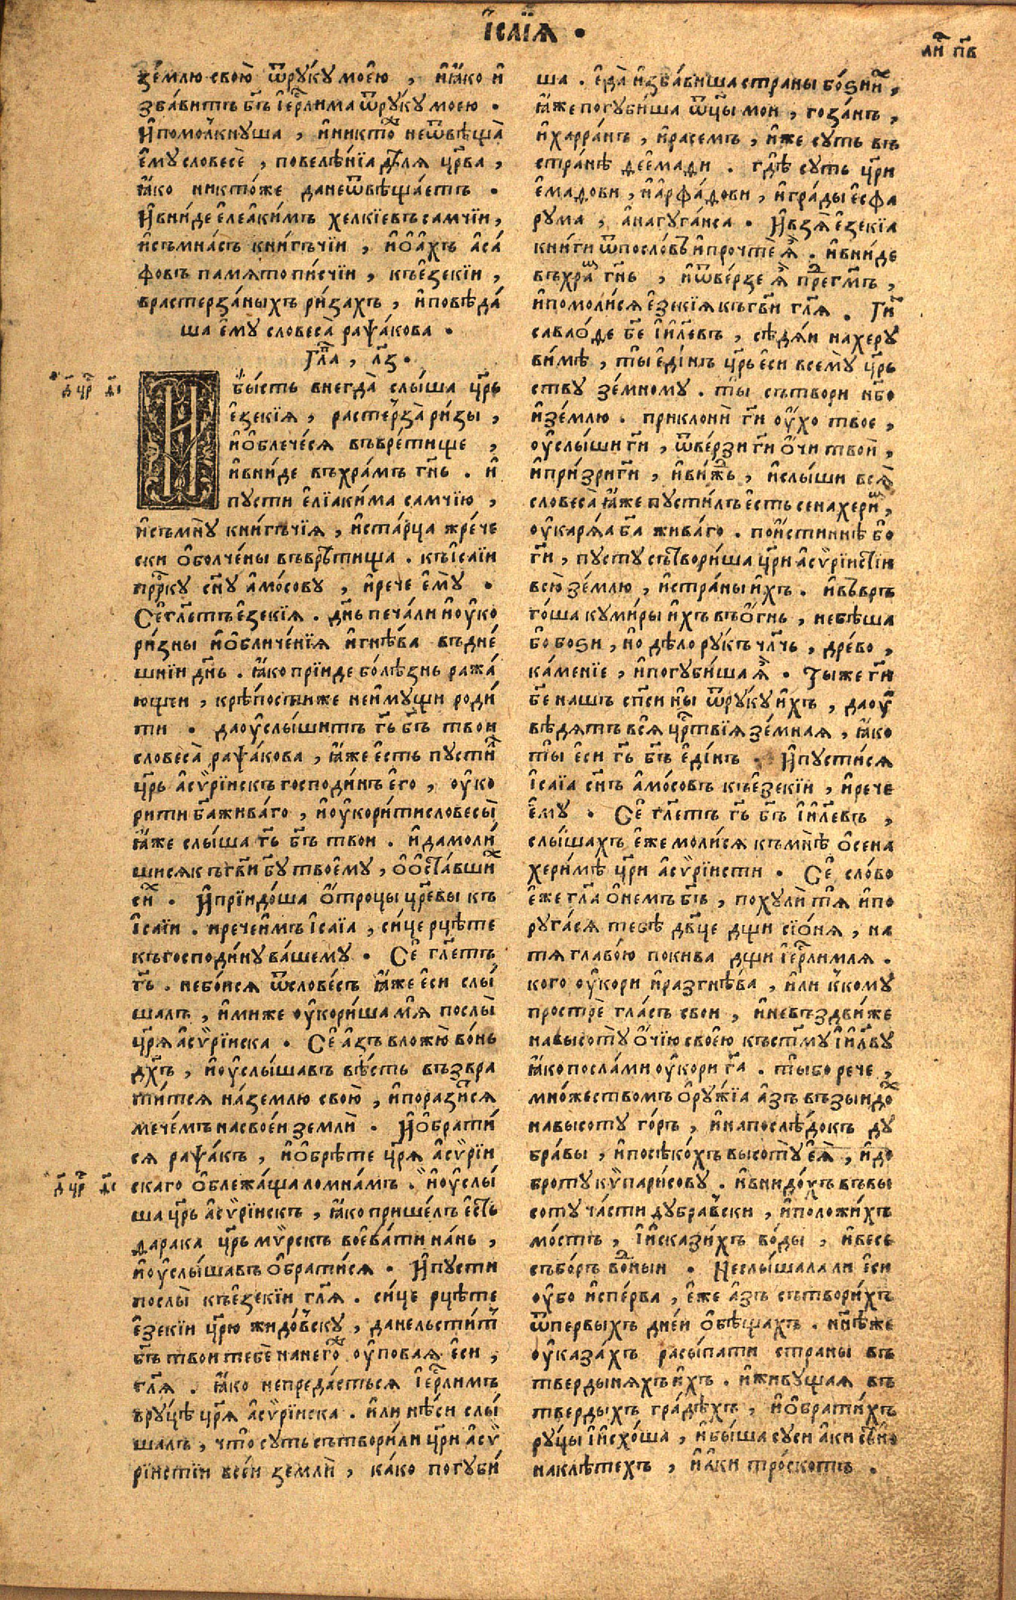 І҆саїѧ .
ли҃ п҃в
зе́млю свою̀ ѿрꙋ́кꙋ мое́ю , и҆ꙗ҆́ко и҆
зба́витъ бг҃ъ і҆ерⷭ҇лима ѿрꙋ́кꙋ моею̀ .
И҆помолкнꙋша , и҆никто́ неѿвѣща̀
е҆мꙋ словесѐ , повелѣ́нїа дѣ́лѧ цр҃ва ,
ꙗ҆́ко никто́же данеѿвѣщаетъ .
И҆вни́де е҆леа҆кимъ хелкїевъ самчїи ,
и҆съмна́съ кни́гъчїи , и҆ѻ҆а́хъ а҆са́
фовъ памѧтопи́счїи , къе҆зекїи ,
врастерза́ныхъ ри́захъ , и҆повѣ́да
ша е҆мꙋ словеса̀ раѱа́кова .
Гла҃ , л҃з .
д҃ цр҃ д҃і
И҆бы́сть внегда̀ слы́ша цр҃ь
е҆зекїѧ , растерза̀ ри́зы ,
и҆ѻ҆блече́сѧ въвре́тище ,
и҆вни́де въхра́мъ гн҃ь . и҆
пꙋсти е҆лїа́кима самчїю ,
и҆съмнꙋ̀ кни́гъчїѧ , и҆ста́рца жре́че
ски ѻ҆болче́ны въвре́тища . къі҆са́їи
прⷪ҇ркꙋ сн҃ꙋ а҆мо́совꙋ , и҆рече е҆мꙋ̀ .
Сѐ гл҃етъ е҆зекїѧ . дн҃ь печа́ли и҆ѹ҆ко
ри́зны и҆ѻ҆бличе́нїѧ и҆гнѣ́ва въдне́
шнїи дн҃ь . ꙗ҆́ко прїи́де болѣ́знь ража́
ющи , крѣ́пости́же неи҆мꙋщи роди́
ти . даѹ҆слы́шитъ гь҃ бг҃ъ твои
словеса̀ раѱа́кова , ꙗ҆́же е҆сть пꙋсти́л
цр҃ь а҆сѷрі́искъ господи́нъ е҆го̀ , ѹ҆ко
рити бг҃а жива́го , и҆ѹ҆кори́ти словесы̀
ꙗ҆́же слы́ша гь҃ бг҃ъ твои . и҆ да моли́
шисѧ къгв҃и бг҃ꙋ твое́мꙋ , ѻ҆ ѻ҆ста́вши
си́х . И҆прїидо́ша ѻ҆́троцы цр҃евы къ
і҆са́їи . и҆речеи́мъ і҆са́їа , си́це рцѣ́те
къгосподи́нꙋ ва́шемꙋ . Сѐ гл҃етъ
гь҃ . небо́исѧ ѿслове́съ ꙗ҆́же е҆си слы́
шалъ , и҆ми́же ѹ҆кори́ша мѧ̀ послы̀
цр҃ѧ а҆сѷрі́иска . Сѐ а҆́зъ вложю̀ во́нь
дх҃ъ , и҆ѹ҆слы́шавъ вѣ́сть възвра
ти́тсѧ на́землю свою̀ , и҆порази́сѧ
мече́мъ насвоеи́ землѝ . И҆ѻ҆брати́
сѧ раѱа́къ , и҆ѻ҆брѣ́те цр҃ѧ а҆сѷрі́и
скаго ѻ҆блежа́ща ломна́мъ . и҆ѹ҆слы́
д҃ цр҃ д҃і
ша цр҃ь а҆сѷрі́искъ , ꙗ҆́ко прише́лъ е҆сть
дарака цр҃ь мѷрскъ воева́ти на́нь ,
и҆ѹ҆слы́шавъ ѻ҆брати́сѧ . И҆пꙋсти
послы̀ къе҆зекїи гл҃ѧ . си́це рцѣ́те
е҆зекїи цр҃ю жидо́вскꙋ , данельсти́т
бг҃ъ твои тебѐ нанего́же ѹ҆повая е҆си ,
гл҃ѧ . ꙗ҆́ко непреда́стьсѧ і҆ерⷭ҇лимъ
врꙋцѣ̀ цр҃ѧ а҆сѷрі́иска . и҆ли нѣ́си слы́
шалъ , что̀ сꙋть сътвори́ли цр҃и а҆сѷ
рі́истїи все́и землѝ , ка́ко погꙋби́
ша . е҆да̀ и҆зба́виша страны̀ бо́ѕи и҆́х ,
ꙗ҆́же погꙋби́ша ѿц҃ы мои , гоза́нъ ,
и҆харра́нъ , и҆расемъ , и҆́же сꙋть въ
стра́нѣ дее҆ма́ди . гдѣ̀ сꙋть цр҃и
е҆ма́дови , и҆а҆рфа́дови , и҆гра́ды е҆сфа
рꙋма , а҆нагꙋга́нса . И҆взѧ̀ е҆зекїа
кни́ги ѿпосло́въ и҆прочте́ ѧ҆̀ . и҆вни́де
въхра́м гн҃ь , и҆ѿве́рзе ѧ҆̀ пре́дгм҃ъ ,
и҆помоли́сѧ е҆зекїѧ къгв҃и гл҃ѧ . Ги҃
савао́ѳе бж҃е і҆и҃левъ , сѣдѧ́и нахерꙋ
ви́мѣ , ты̀ е҆ди́нъ цр҃ь е҆си всемꙋ̀ цр҃ь
ствꙋ зе́мномꙋ . ты̀ сътвори нб҃о
и҆зе́млю . приклонѝ ги҃ ѹ҆́хо твое ,
ѹ҆слы́ши ги҃ , ѿве́рзи ги҃ ѻ҆́чи твоѝ ,
и҆при́зри ги҃ , и҆ви́жь , и҆слы́ши всѧ̀
словеса̀ ꙗ҆́же пꙋсти́лъ е҆сть сенахери́м ,
ѹ҆карѧ́а бг҃а жива́го . пои́стиннѣ бо
ги҃ , пꙋстꙋ сътвори́ша цр҃и а҆сѷрі́истїи
всю̀ зе́млю , и҆страны̀ и҆́хъ . и҆въврь
го́ша кꙋми́ры и҆́хъ въѻ҆́гнь , небѣ́ша
бо бо́ѕи , но дѣ́ло рꙋкъ чл҃чь , дре́во ,
ка́менїе , и҆погꙋби́ша ѧ҆̀ . Ты́же ги҃
бж҃е нашъ сп҃си ны̀ ѿрꙋкꙋ и҆́хъ , даѹ҆
вѣ́дѧтъ всѧ̀ црⷭ҇твїѧ зе́мнаѧ , ꙗ҆́ко
ты̀ е҆си гь҃ бг҃ъ е҆ди́нъ . И҆пꙋсти́сѧ
і҆са́їа сн҃ъ а҆мо́совъ къе҆зекїи , и҆рече
е҆мꙋ̀ . Сѐ гл҃етъ гь҃ бг҃ъ і҆и҃левъ ,
слы́шахъ е҆же моли́сѧ къмнѣ̀ ѻ҆ сена
херимѣ цр҃и а҆сѷрі́исти . Сѐ сло́во
е҆́же гл҃а ѻ҆не́мъ бг҃ъ , похꙋлѝ тѧ̀ и҆по
рꙋга́сѧ тебѣ̀ дв҃це дщи сїо́нѧ , на
тѧ̀ главо́ю покива дщи і҆ерⷭ҇лимлѧ .
кого ѹ҆кори и҆разгнѣ́ва , и҆ли ккомꙋ
прострѐ гла́съ свои , и҆невъздви́же
навысотꙋ̀ ѻ҆́чїю своею̀ къст҃мꙋ і҆и҃лвꙋ
ꙗ҆́ко посла́ми ѹ҆кори гⷭ҇а . ты́ бо рече ,
мно́жествомъ ѻ҆рꙋ́жїа а҆́зъ възыидо́х
навысотꙋ го́ръ , и҆напослѣ́докъ дꙋ
бра́вы , и҆посѣко́хъ высотꙋ̀ е҆ѧ̀ , и҆до
бротꙋ кѷпари́совꙋ . и҆внидо́хъ въвы
сотꙋ ча́сти дꙋбра́вски , и҆положи́хъ
мо́стъ , і҆и҆скази́хъ во́ды , и҆весь
съборъ во́дныи . Неслы́шала ли е҆си
ѹ҆́бо и҆спе́рва , е҆́же а҆́зъ сътвори́хъ
ѿпе́рвыхъ дне́и ѻ҆бѣща́хъ . нн҃ѣже
ѹ҆каза́хъ расы́пати страны въ
тверды́нѧхъ и҆́хъ . и҆живꙋ́щаѧ въ
тве́рдыхъ гра́дѣхъ , и҆ѻ҆брати́хъ
рꙋ́цы і҆и҆схо́ша , и҆бы́ша сꙋси а҆́ки сѣ́но
наклѣ́техъ , и҆ꙗ҆́ки тро́скотъ .